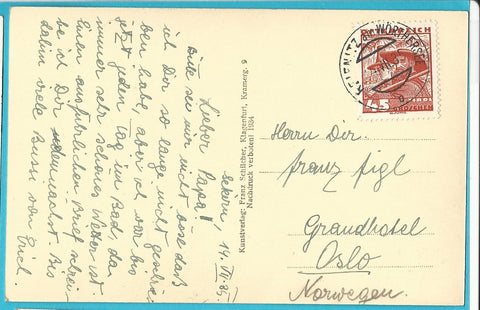 Sekirn, 14. VII. 35.
Lieber Papa!
Bitte sei mir nicht böse daß
ich Dir so lange nicht geschrie-
ben habe, aber ich war bis
jetzt jeden Tag im Bad, da
immer sehr schönes Wetter ist.
Einen ausführlichen Brief schrei-
be ich Dir demnächst. Bis
dahin viele Bussi von Erich.
Kunstverlag: Franz Schilcher, Klagenfurt, Kramerg. 9
Nachdruck verboten! 1934
WÖRTHERSEE
ÖSTERREICH
45
GROSCHEN
Herrn Dir.
Franz Figl
Grandhotel
Oslo
Norwegen.